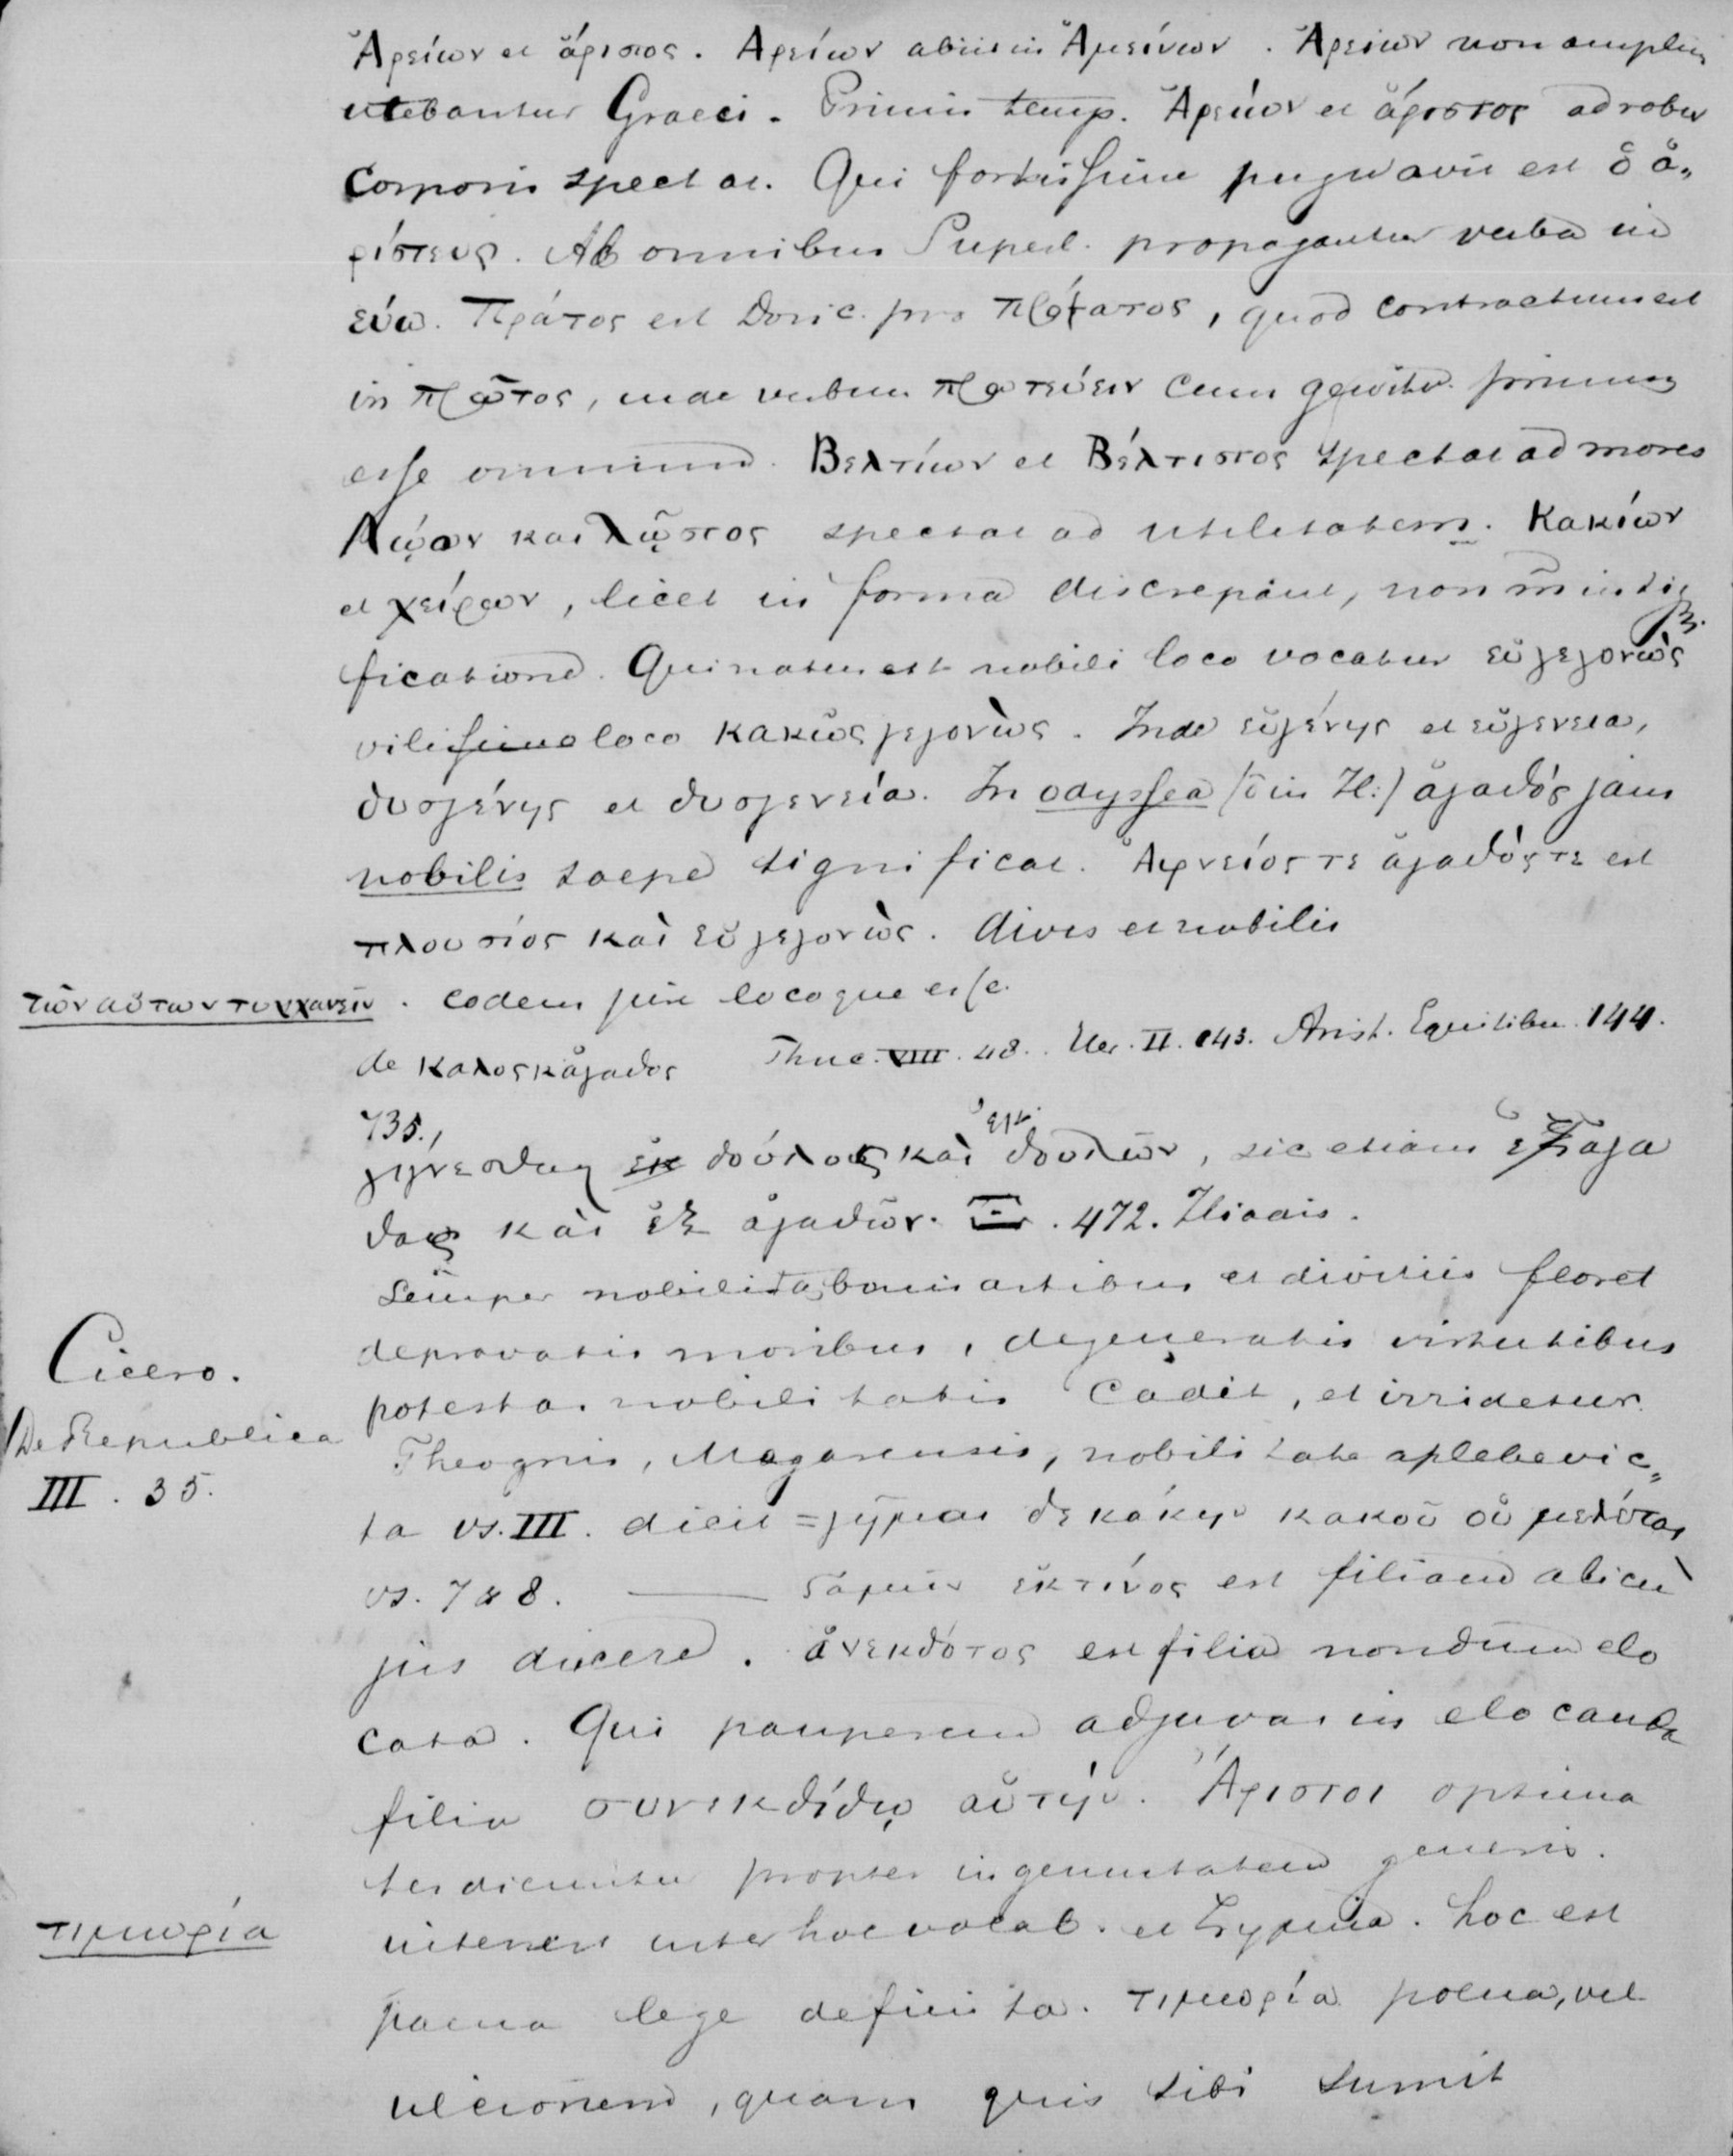 Ἀρείων et ἄριστος. Ἀρείων abiit in Ἀμείνων. Ἀρείων non amplius
utebantur Graeci. Primis temp. Ἀρείων et ἄριστος ad robur
Corporis spectat. Qui fortissime pugnavit est ὁ ἀ„
ρίστευς. Ab omnibus Superl. propagantur verba in
εύω. Πράτος est Doric. pro πρόατος, quod contractum est
in πρῶτος, unde verbum πρωτεύειν cum genitiv. primum
esse omnium. Βελτίων et Βέλτιστος spectat ad mores
Λῴων και λῷστος spectat ad utilitatem. Κακίων
et χείρων, licet in forma discrepant, non in
ficatione. Qui natus est nobili loco vocatur εὐ γεγονὼς
vilissimo loco κακῶς γεγονὼς. Inde εὐγένης et εὐγενεια,
δυσγένης et δυσγενεία. In odyssea (ō in Il:) ἀγαθός jam
nobilis saepe significat. Ἀφνείος τε ἀγαθός τε est
πλουσίος καὶ εὐ γεγονὼς. dives et nobilis
τῶν αὐτων τυγχανεῖν. eodem jure locoque esse.
de καλοςκἀγαθος Thuc. VIII. 48. Her. II. 143. Arist. Equitibus. 144.
735.,
γιγνεσθαι ἐκ δούλος καὶ ἐκ δουλῶν, sic etiam ἐξ αγα
θος καὶ ἐξ ἀγαθῶν. Ξ. 472. Iliadis.
Semper nobilitas bonis artibus et divitiis floret
depravatis moribus, degeneratis virtutibus
potestas nobilitatis Cadit, et irridetur.
Cicero.
De Republica
III. 35.
Theognis, Magarensis, nobilitate a plebe vic„
ta vs. III. dicit = γῆμαι δε κάκην κακοῦ οὐ
vs. 7 & 8. — Γαμεῖν ἐκ τίνος est filiam alicu
jus ducere. ἀνεκδότος est filia nondum elo
cata. Qui pauperem adjuvat in elocanda
filia συνεκδίδῳ αὐτήν. Ἄριστοι optima
tes dicuntur propter ingenuitatem generis.
τιμωρία
interest inter hoc vocab. et ζημία. hoc est
paena lege definita. τιμωρία poena, vel
ulcionem, quam quis sibi sumit